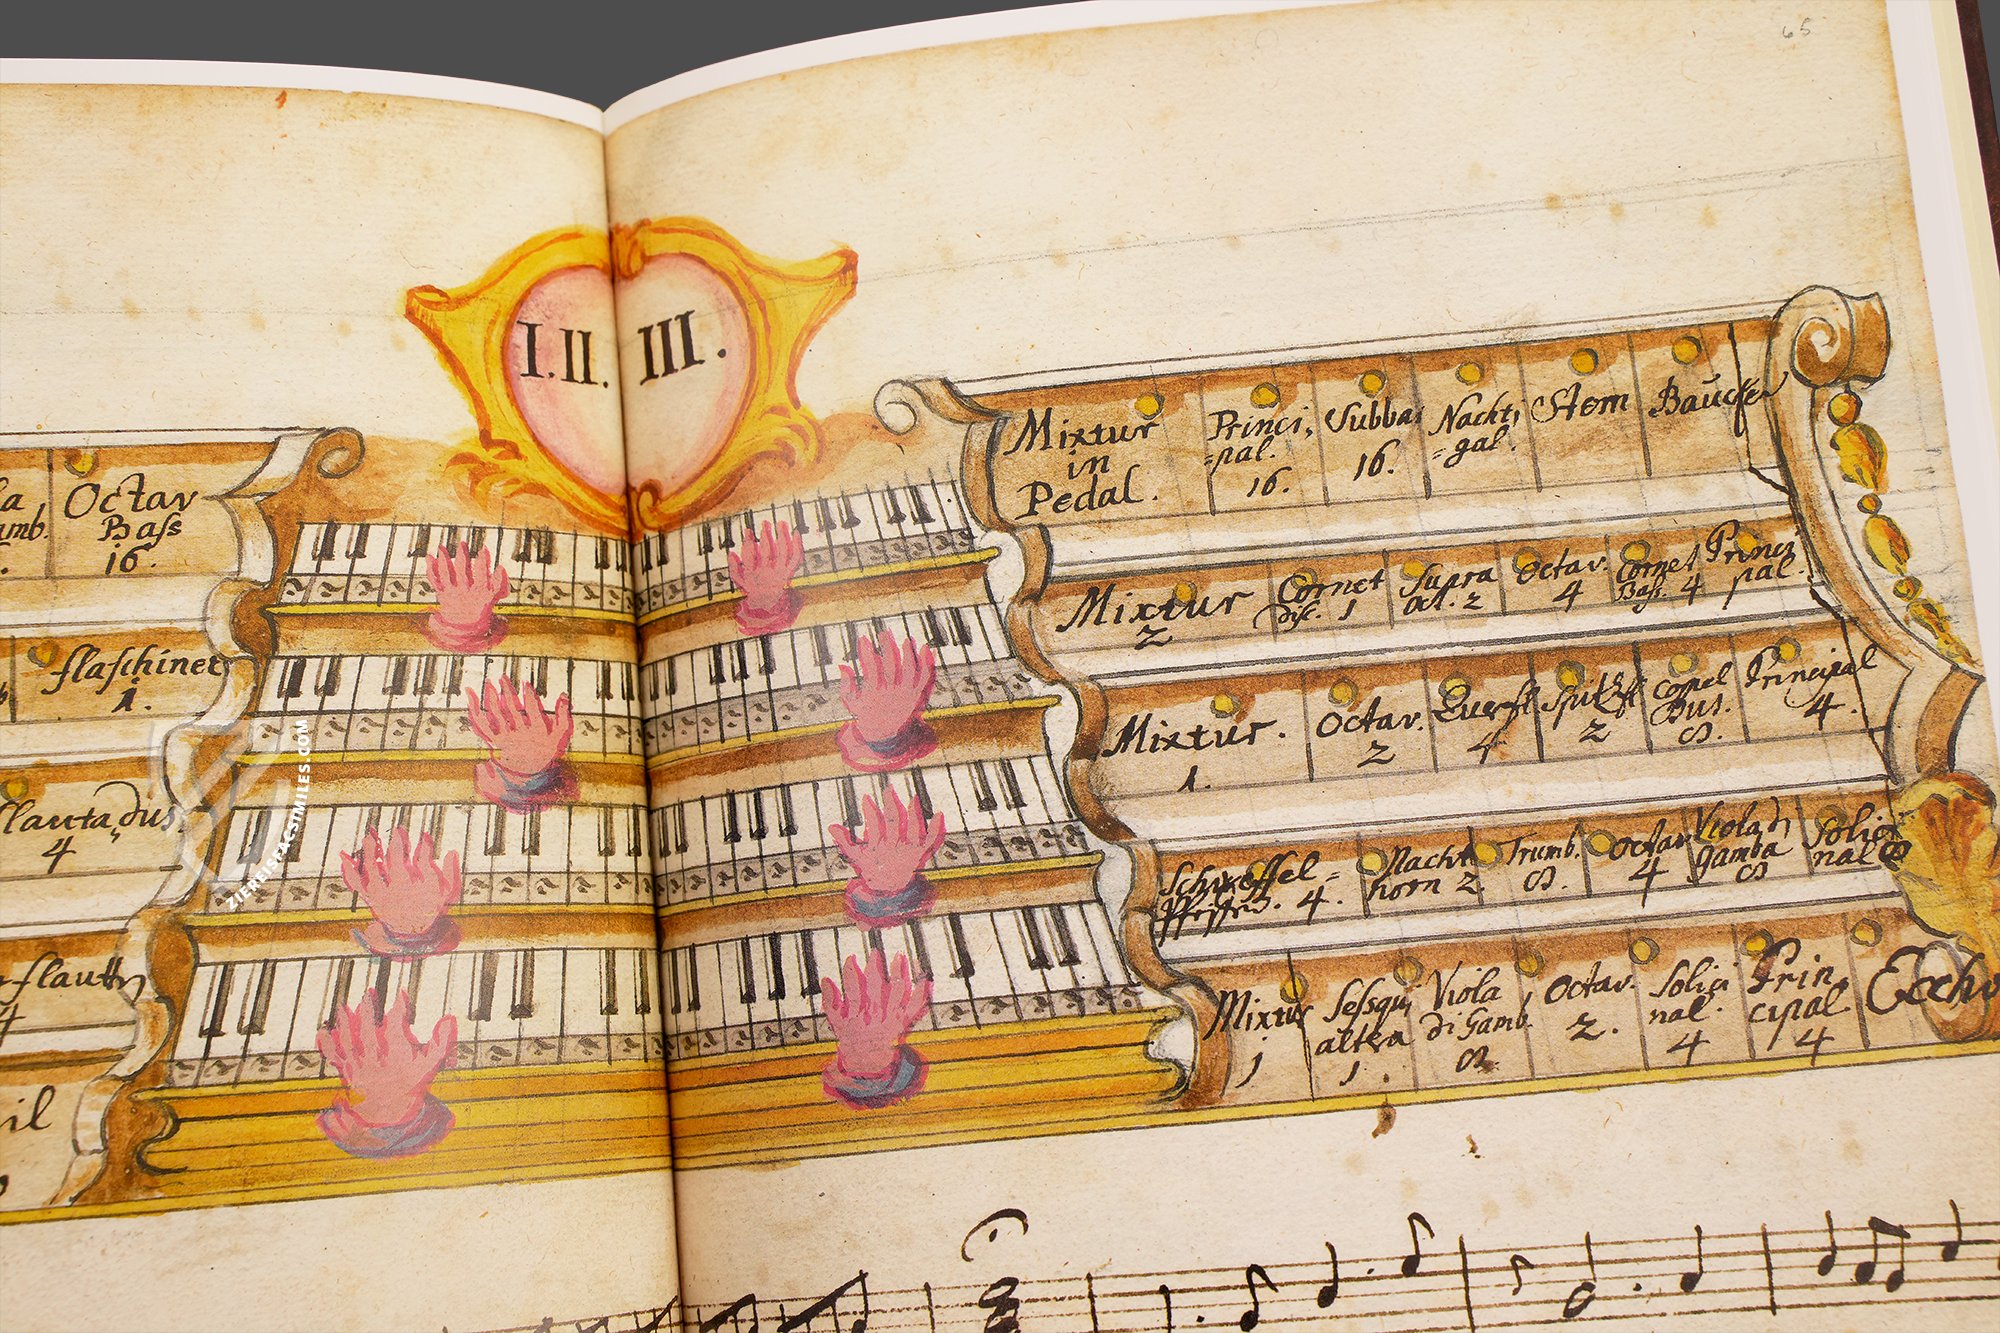 65
I. II. III.
Octav
Baſs
16.
flaſchinet
1.
4
Mixtur
in
Pedal.
Princi,
=pal.
16.
Subba,
16.
Nacht,
=gal.
Stern
Baucken
Mixtur
2
Cornet
Diſc. 1
Supra
oct. 2
Octav.
4
Cornet
Baſs. 4
Princi
pal.
Mixtur.
1.
Octav.
2
Querfl
4
Spitzfl
2
Copel
Dus.
8.
Principal
4.
Schweffel=
Pfeiffen. 4.
Nacht
horn 2.
Trumb.
8.
Octav
4
Viola di
gamba
8
Solici
nal 8
Mixtur
1
Seſsqui
altra
1.
Viola
di Gamb.
8.
Octav.
2.
Solici
nal.
4
Prin
cipal.
4
Eccho
ZIEREISFACSIMILES.COM